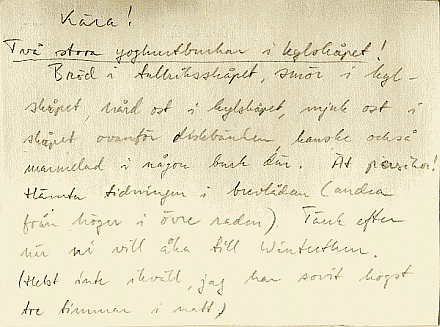 Kära!
Två stora yoghurtburkar i kylskåpet!
Bröd i tallriksskåpet, smör i kyl-
skåpet, hård ost i kylskåpet, mjuk ost i
skåpet ovanför diskbänken, kanske också
marmelad i någon burk där. Ät persikor!
Hämta tidningen i brevlådan (andra
från höger i övre raden). Tänk efter
när ni vill åka till Winterthur.
(Helst inte ikväll, jag har sovit högst
tre timmar i natt.)